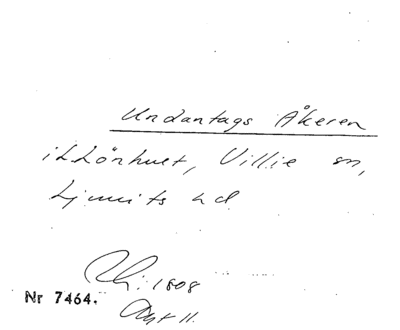 Undantags Åkeren
i Lönhult, Villie sn,
Ljunits hd
1808
Nr 7464.
Akt 11.